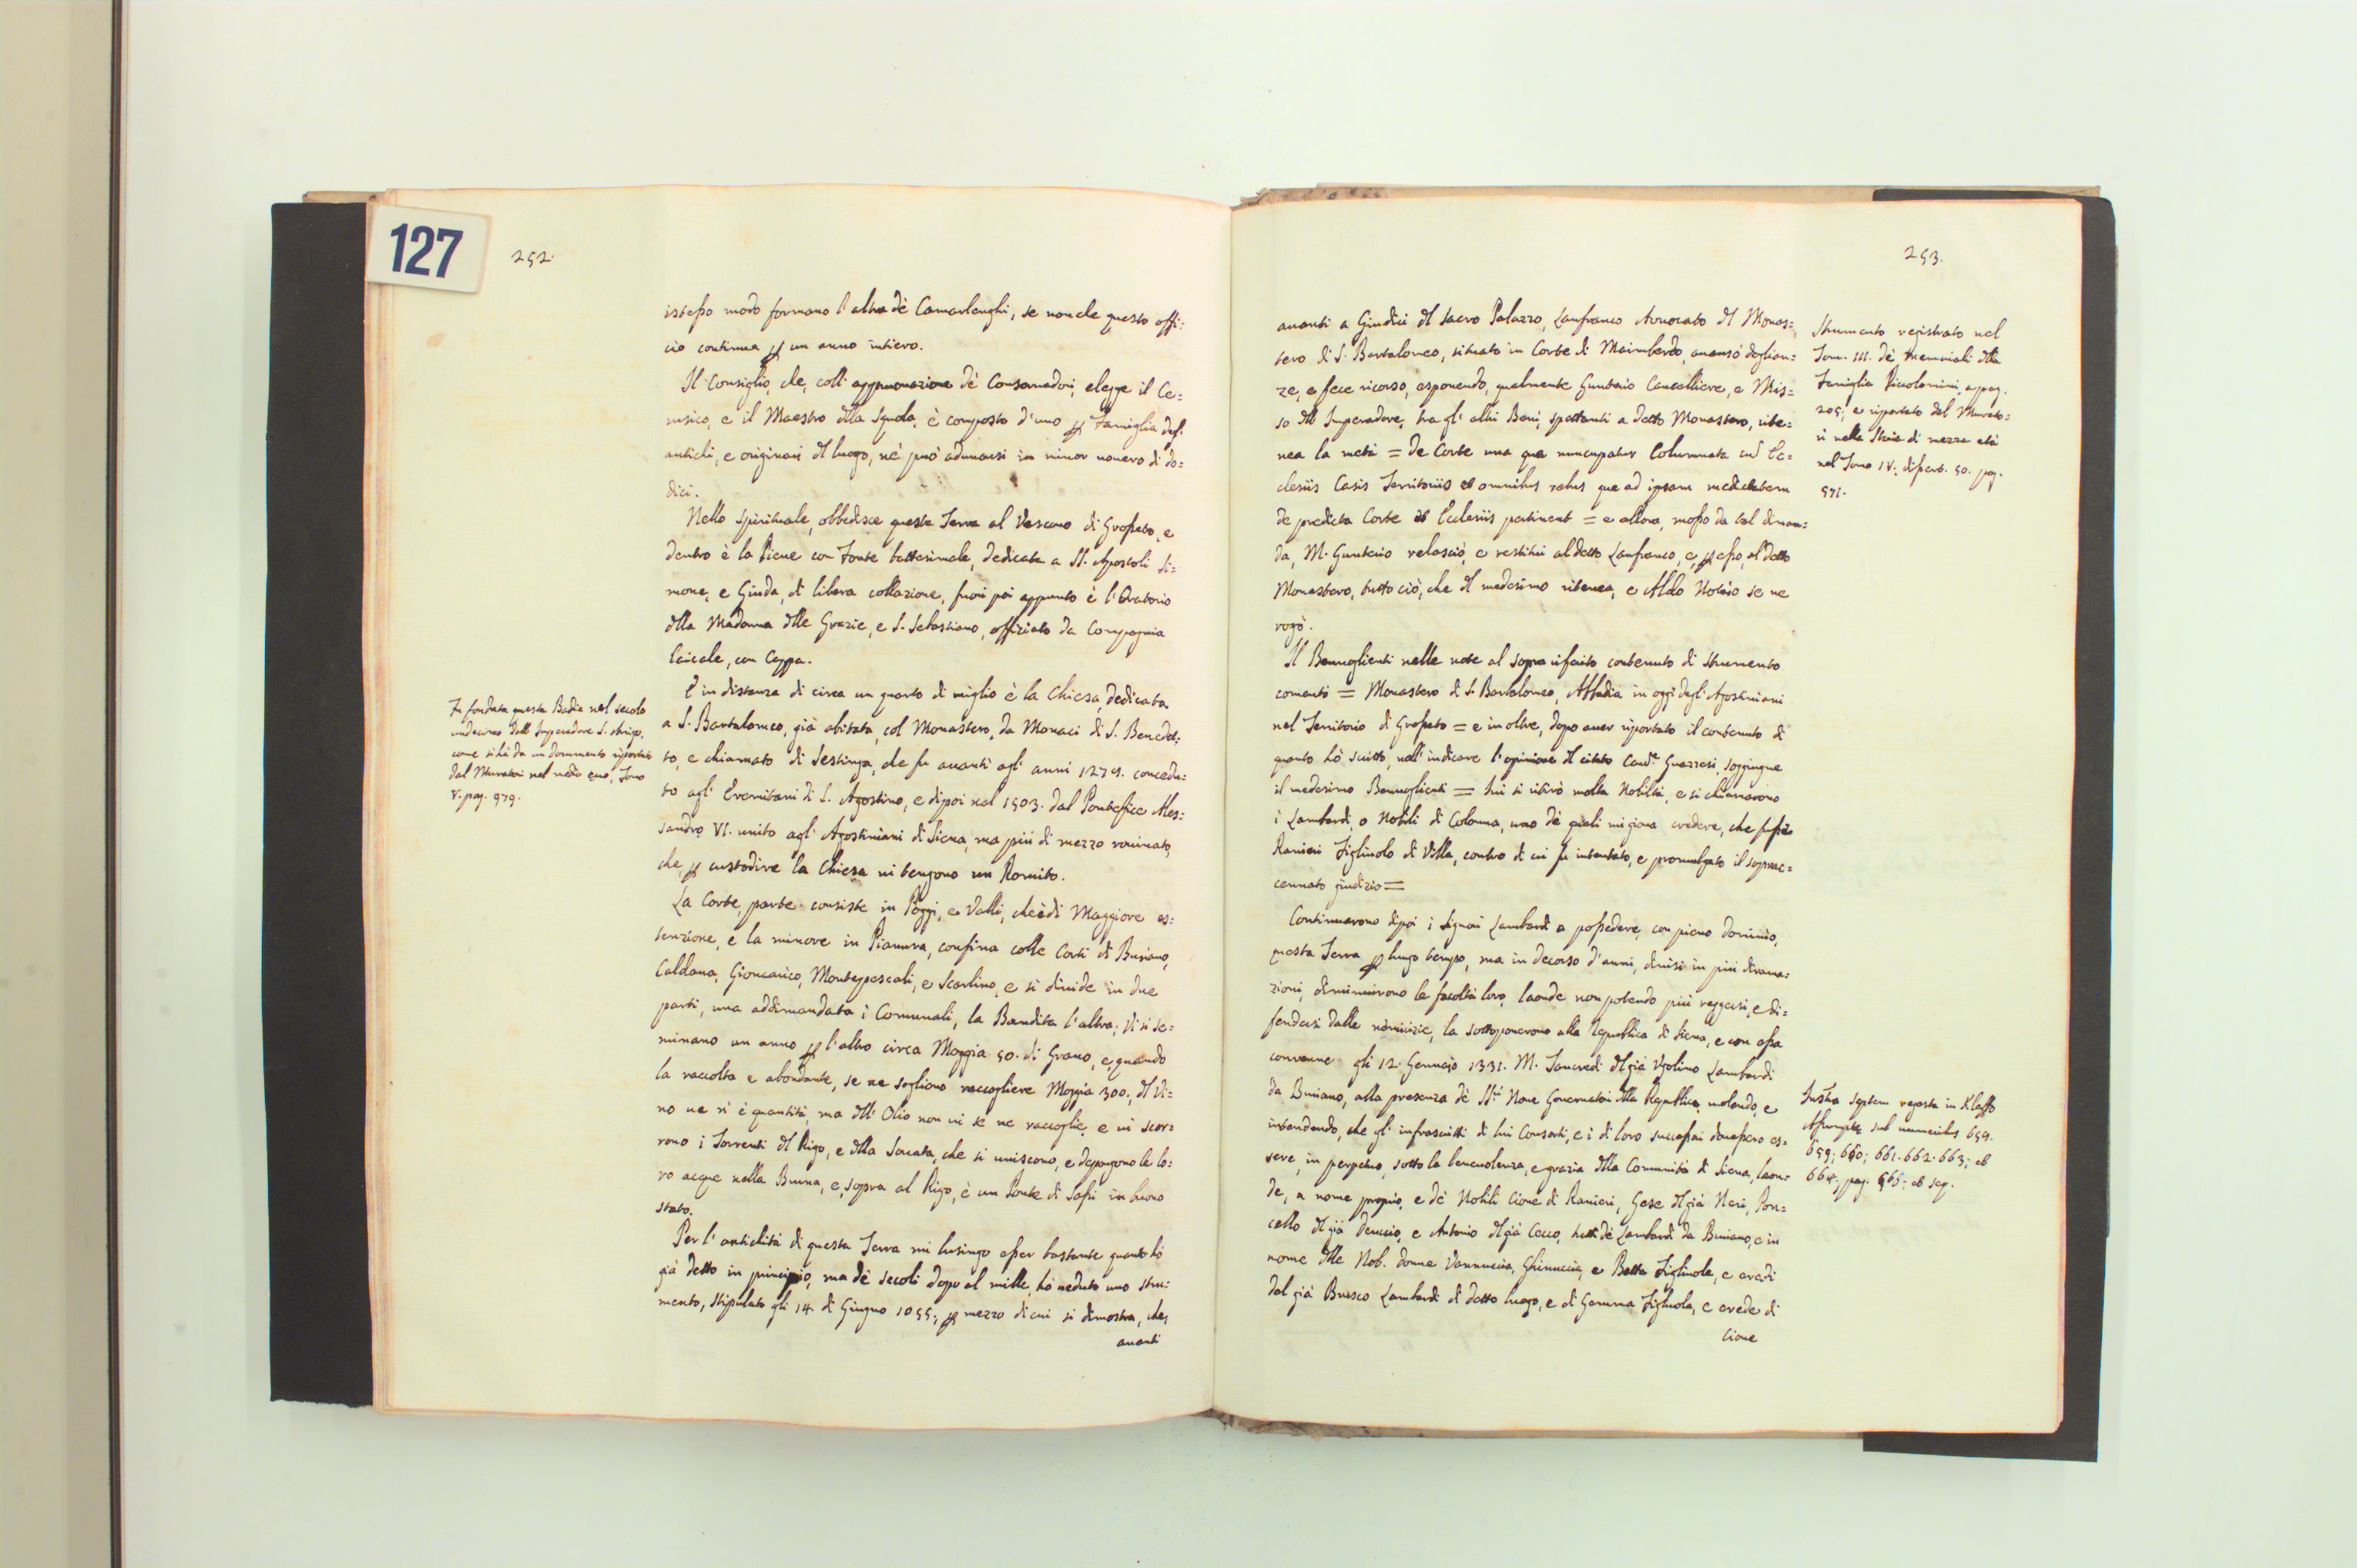 127
252.
istesso modo formano l'altra dè Camarlenghi, se non che questo offi:
cio continua per un anno intiero.
Il Consiglio, che, coll'approvazione dè Consernadori, elegge il Ce:
rusico, e il Maestro della Squola, è composto d'uno per Famiglia degl'
antichi, e originari del luogo, nè può adunarsi in minor novero di do:
dici.
Nello spirituale, obbedisce questa Terra al Vescovo di Grosseto, e
dentro è la Pieve con Fonte battesimale, dedicata a SS. Apostoli Si:
mone, e Giuda, di libera collazione, fuori poi appunto è l'Oratorio
della Madonna delle Grazie, e S. Sebastiano, offiziato da Compagnia
laicale, con Cappa.
E in distanza di circa un quarto di miglio è la Chiesa, dedicata
a S. Bartalomeo, già abitata, col Monastero, da Monaci di S. Benedet:
to, e chiamato di Sestinga, che fu avanti agl'anni 1274. concedu:
to agl'Eremitani di S. Agostino, e dipoi nel 1503. dal Pontefice Ales:
sandro VI. unito agl'Agostiniani di Siena, ma più di mezzo rovinato,
che, per custodire la Chiesa vi tengono un Romito.
La Corte, parte consiste in Poggi, e Valli, che è di Maggiore es:
tenzione, e la minore in Pianura, confina colle Corti di Buriano,
Caldana, Gioncarico, Montepescali, e Scarlino, e si divide in due
parti, una addimandata i Comunali, la Bandita l'altra; vi si se:
minano un anno per l'altro circa Moggia 50. di Grano, e, quando
la raccolta e abondante, se ne sogliono raccogliere Moggia 300., del Vi:
no ve n'è quantità, ma dell'Olio non vi se ne raccoglie, e vi scor:
rono i Torrenti del Rigo, e della Sovata, che si uniscono, e depongono le lo:
ro acque nella Bruna, e, sopra al Rigo, è un Ponte di Sassi in buono
stato.
Per l'antichità di questa Terra mi lusingo esser bastante quanto hò
già detto in principio, ma dè secoli dopo al mille, hò veduto uno stru:
mento, stipulato gli 14. di Giugno 1055., per mezzo di cui si dimostra, che,
avanti
Fu fondata questa Badia nel secolo
undecimo dall'Imperadore S. Arrigo,
come si hà da un documento riportato
dal Muratori nel medio evo, Tomo
V. pag. 979.
253.
avanti a Giudici del sacro Palazzo, Lanfranco Avvocato del Monas:
tero di S. Bartalomeo, situato in Corte di Mairnberdo, avanzò doglian:
ze, e fece ricorso, esponendo, qualmente Gunterio Cancelliere, e Mis:
so dell'Imperadore, tra gl'altri Beni, spettanti a detto Monastero, rite:
nea la metà = De Corte una que nuncupatur Columnata cum Ec:
clesiis Casis Territoriis et omnibus rebus que ad ipsam medietatem
de predicta Corte et Ecclesiis pertinent = e allora, mosso da tal diman:
da, M. Gunterio relasciò, e restituì al detto Lanfranco, e, per esso, al detto
Monastero, tutto ciò, che del medesimo ritenea, e Aldo Notaio se ne
rogò.
Il Benvoglienti nelle note al sopra rifaito contenuto di strumento
comentò = Monastero di S. Bartolomeo, Abbadia in oggi degl'Agostiniani
nel Territorio di Grosseto = e in oltre, dopo aver riportato il contenuto di
quanto hò scritto, nell'indicare l'opinione del citato Cav.re Guazzesi, soggiugne
il medesimo Benvoglienti = Lui si ritirò molta Nobiltà, e si chiamavono
i Lambardi, o Nobili di Colonna, uno dè quali mi giova credere, che fusse
Ranieri Figliuolo di Villa, contro di cui fu intentato, e promulgato il soprac:
cennato giudizio =
Continuarono dipoi i Signori Lambardi a possedere, con pieno dominio,
questa Terra per lungo tempo, ma in decorso d'anni, divisi in più dirama:
zioni, diminuirono le facoltà loro, laonde non potendo più reggersi, e di:
fendersi dalle nimicizie, la sottoposerono alla Republica di Siena, e con essa
convenne gli 12. Gennaio 1331. M. Tancredi del già Ugolino Lambardi
da Buriano, alla presenza dè SS.ri Nove Governatori della Republica, volendo, e
intendendo, che gl'infrascritti di lui Consorti, e i di loro successori dovessero es:
sere, in perpetuo, sotto la benevolenza, e grazia della Comunità di Siena, laon:
de, a nome proprio, e dè Nobili Cione di Ranieri, Gese del già Neri, Pon:
cello del già Denuccio, e Antonio del già Cecco, tutti dè Lambardi da Buriano, e in
nome delle Nob. donne Vannuccia, Ghinuccia, e Betta Figliuole, e eredi
del già Brusco Lambardi di detto luogo, e di Gemma Figliuola, e erede di
Cione
Strumento registrato nel
Tom. III. dè memoriali della
Famiglia Piccolomini, a pag.
205; e riportato dal Murato:
ri nella Storia di mezza età
nel Tomo IV. dissert. 50. pag.
571.
Instra septem regesta in Klaffo
Assumpte sub numeribus 654.
659; 660; 661. 662. 663; et
664; pag. 565; et seq.